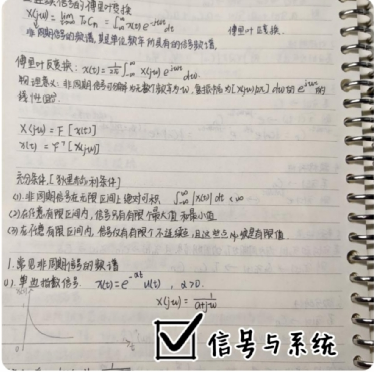 连续信号的傅里叶变换
X(jω) = lim T₀Cₙ = ∫_{-∞}^{∞} x(t) e^{-jωt} dt 傅里叶正变换.
非周期信号的频谱, 其是单位频率所具有的信号频谱.
傅里叶反变换: x(t) = 1/2π ∫_{-∞}^{∞} X(jω) e^{jωt} dω.
物理意义: 非周期信号可分解为无数个频率为ω, 复振幅为[X(jω)/2π]dω的e^{jωt}的
线性组合.
X(jω) = F [x(t)]
x(t) = F⁻¹ [X(jω)]
充分条件. [狄里赫利条件]
(1) 非周期信号在无限区间上绝对可积 ∫_{-∞}^{∞} |x(t)| dt < ∞
(2) 在任意有限区间内, 信号只有有限个最大值和最小值
(3) 在任意有限区间内, 信号仅有有限个不连续点, 且这些点必须是有限值.
1. 常见非周期信号的频谱
(1). 单边指数信号. x(t) = e^{-αt} u(t) , α>0.
X(jω) = 1/(α+jω)
信号与系统